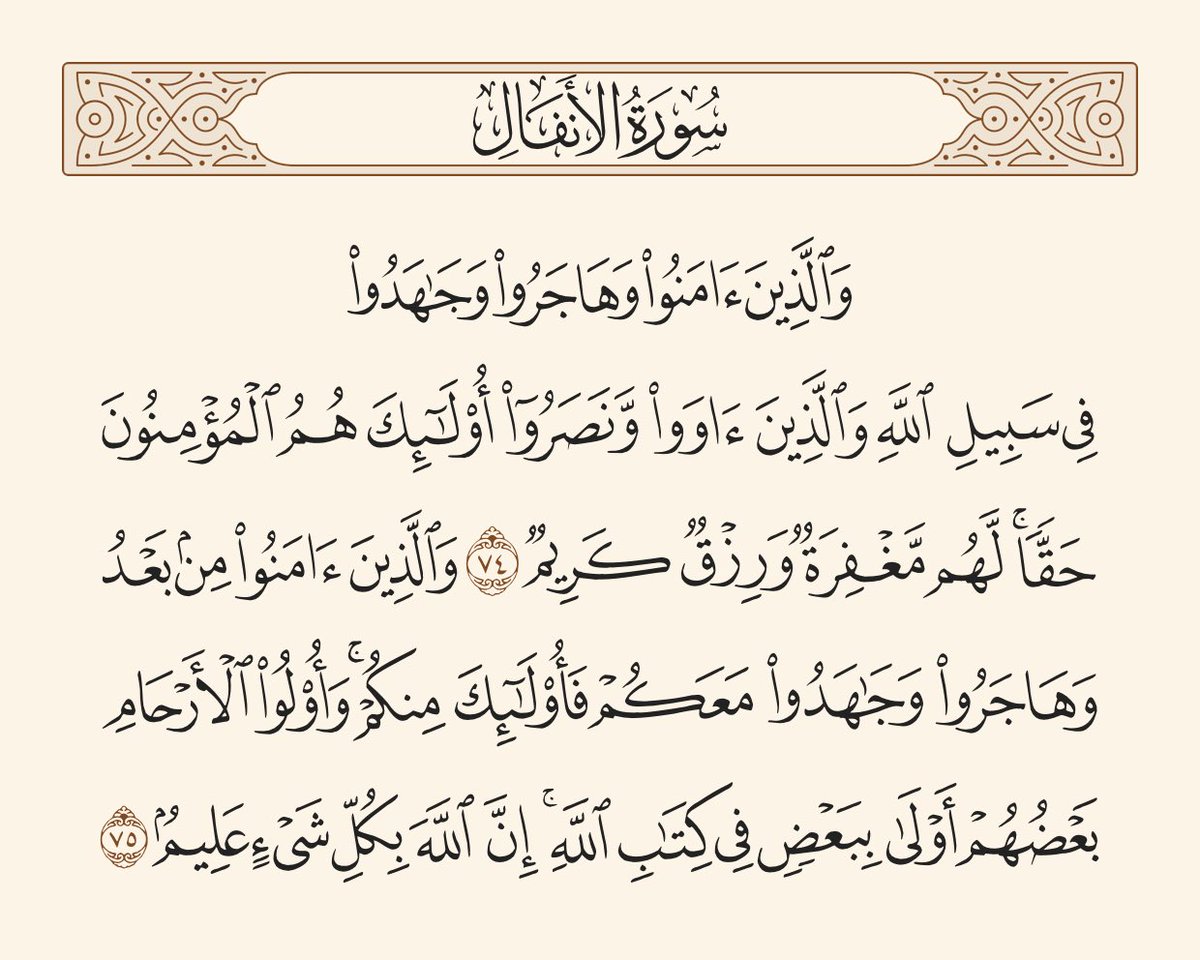 سُورَةُ الأَنفَالِ
وَٱلَّذِينَ ءَامَنُوا۟ وَهَاجَرُوا۟ وَجَـٰهَدُوا۟
فِى سَبِيلِ ٱللَّهِ وَٱلَّذِينَ ءَاوَوا۟ وَّنَصَرُوٓا۟ أُو۟لَـٰٓئِكَ هُمُ ٱلْمُؤْمِنُونَ
حَقًّا ۚ لَّهُم مَّغْفِرَةٌ وَرِزْقٌ كَرِيمٌ ٧٤ وَٱلَّذِينَ ءَامَنُوا۟ مِنۢ بَعْدُ
وَهَاجَرُوا۟ وَجَـٰهَدُوا۟ مَعَكُمْ فَأُو۟لَـٰٓئِكَ مِنكُمْ ۚ وَأُو۟لُوا۟ ٱلْأَرْحَامِ
بَعْضُهُمْ أَوْلَىٰ بِبَعْضٍ فِى كِتَـٰبِ ٱللَّهِ ۚ إِنَّ ٱللَّهَ بِكُلِّ شَىْءٍ عَلِيمٌۢ ٧٥